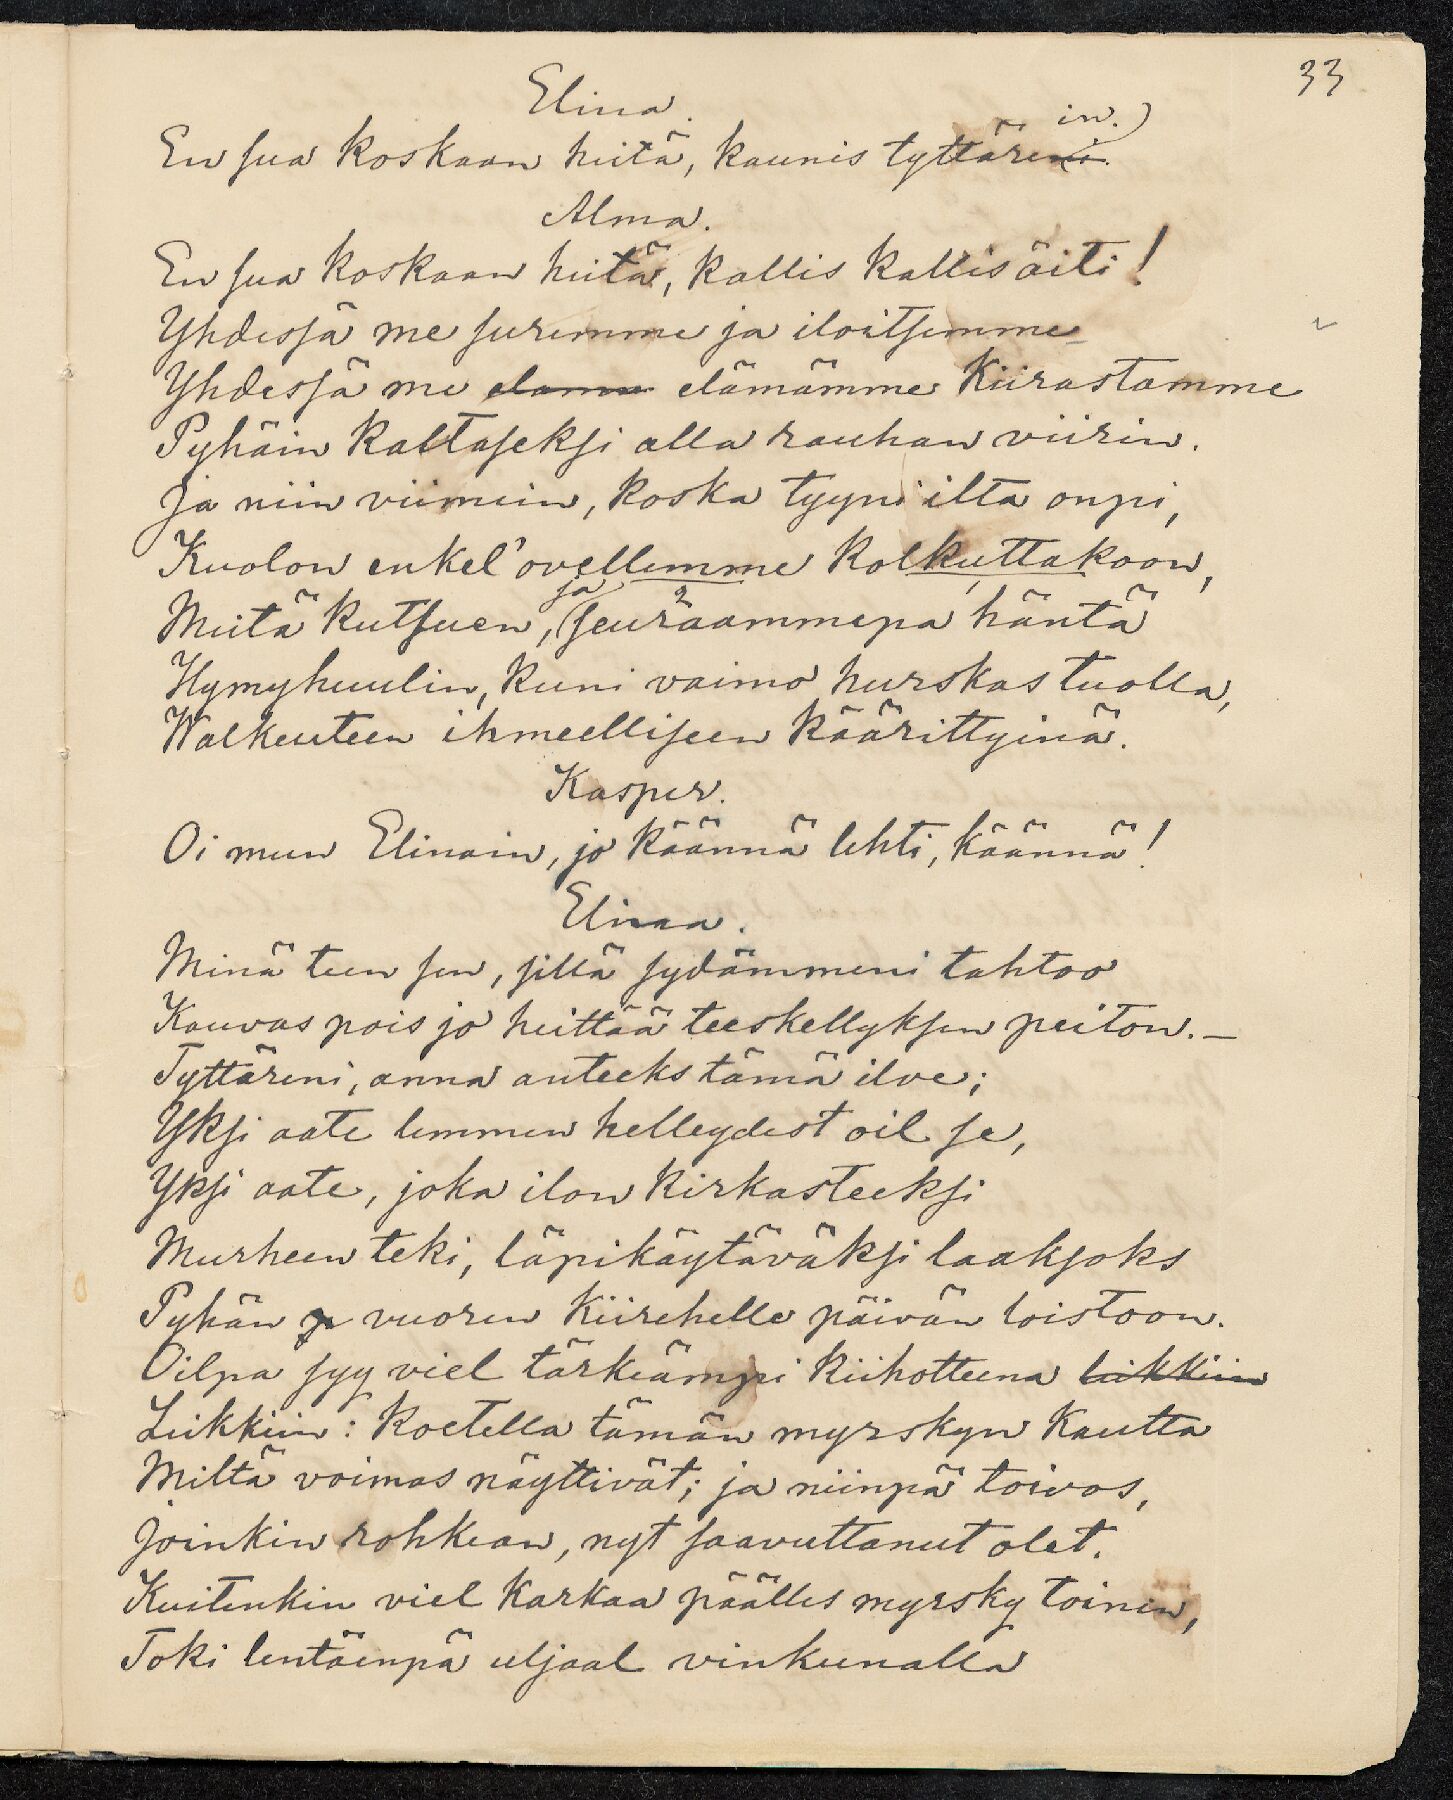 33
Elina.
En sua koskaan heitä, kaunis tyttäreni. in.)
Alma.
En sua koskaan heitä, kallis kallis äiti!
Yhdessä me suremme ja iloitsemme
Yhdessä me elämme elämämme kiirastamme
Pyhäin kaltaseksi alla rauhan viirin.
Ja niin viimein, koska tyyni ilta onpi,
Kuolon enkel' ovellemme kolkuttakoon,
Meitä kutsuen, ja seuraammepa häntä
Hymyhuulin, kuni vaimo hurskas tuolla,
Walkeuteen ihmeelliseen käärittyinä.
Kasper.
Oi mun Elinain, jo käännä lehti, käännä!
Elinaa.
Minä teen sen, sillä sydämmeni tahtoo
Kauvas pois jo heittää teeskellyksen peiton. –
Tyttäreni, anna anteeks tämä ilve;
Yksi aate lemmen helleydest oil se,
Yksi aate, joka ilon kirkasteeksi
Murheen teki, läpikäytäväksi laaksoks
Pyhän vuoren kiirehelle päivän loistoon.
Oilpa syy viel tärkeämpi kiihotteena leikkiin
Leikkiin: koetella tämän myrskyn kautta
Miltä voimas näyttivät; ja niinpä toivos,
Joinkin rohkean, nyt saavuttanut olet.
Kuitenkin viel karkaa päälles myrsky toinen,
Toki lentäenpä uljaal vinkunalla